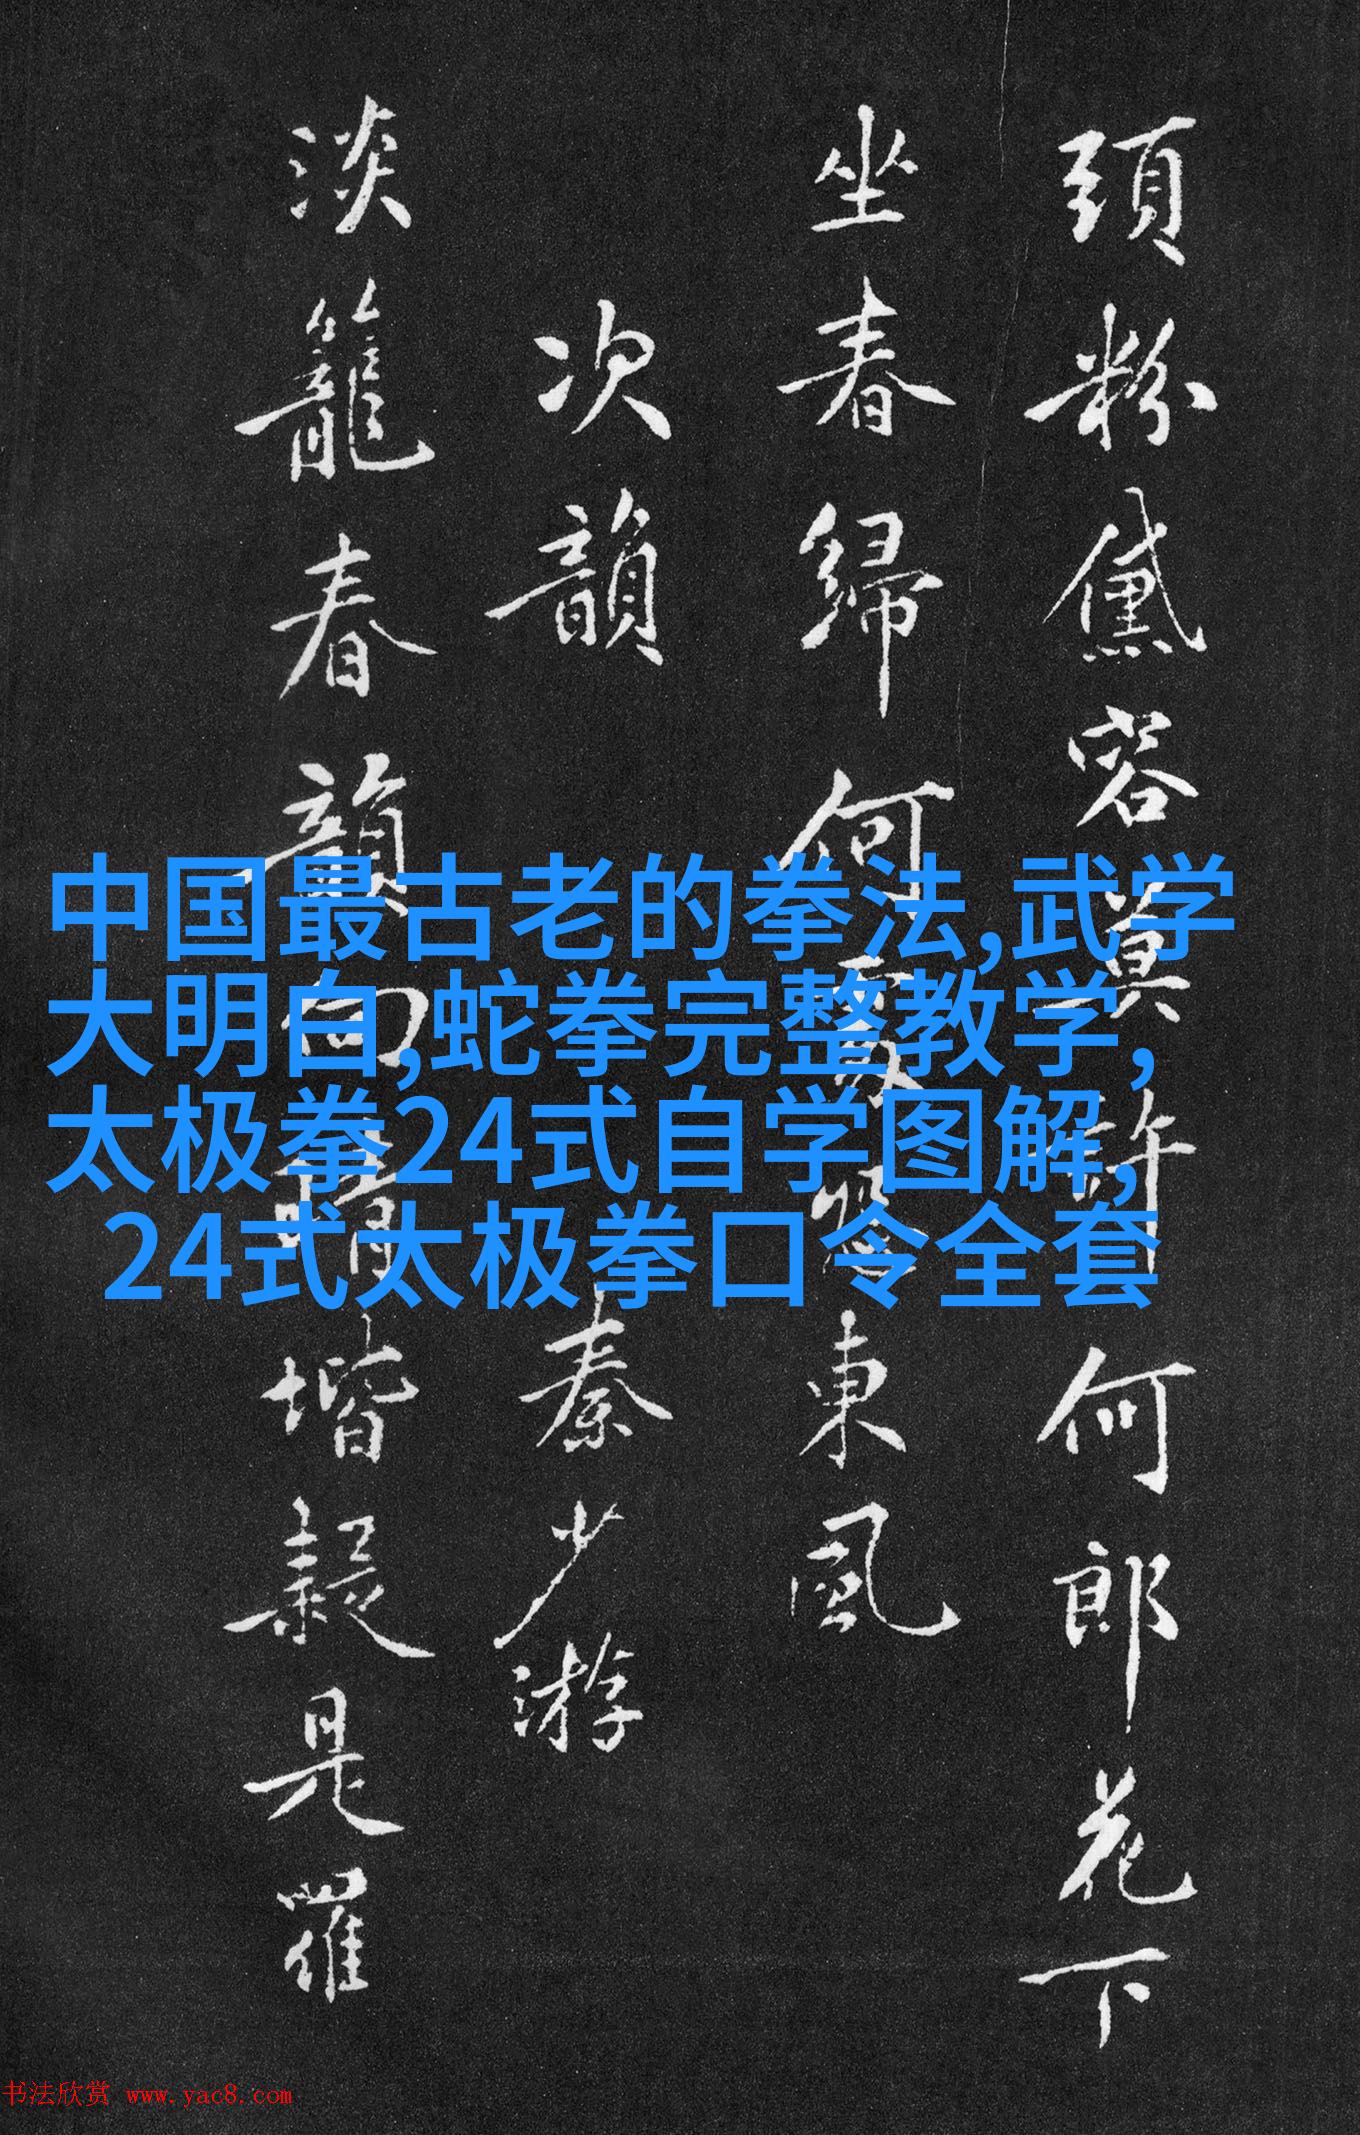 頭粉黛容莫許何郎花下
坐春歸何東風
次韻 秦少游
淡籠春韻向晴堦疑是羅
中国最古老的拳法,武学
大明白,蛇拳完整教学,
太极拳24式自学图解,
24式太极拳口令全套
书法欣赏 www.yac8.com